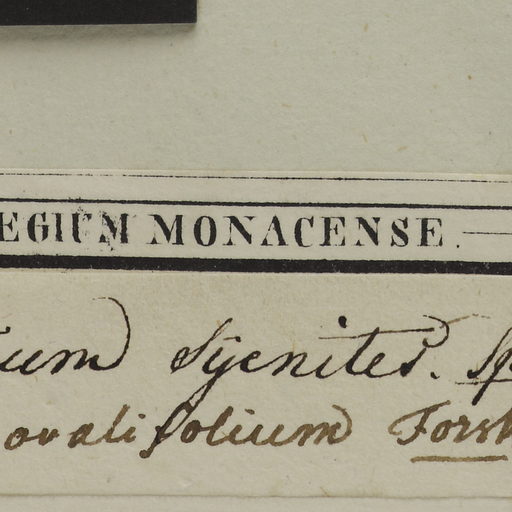 EGIUM MONACENSE.
um Syenites. Sp
ovalifolium Forsk